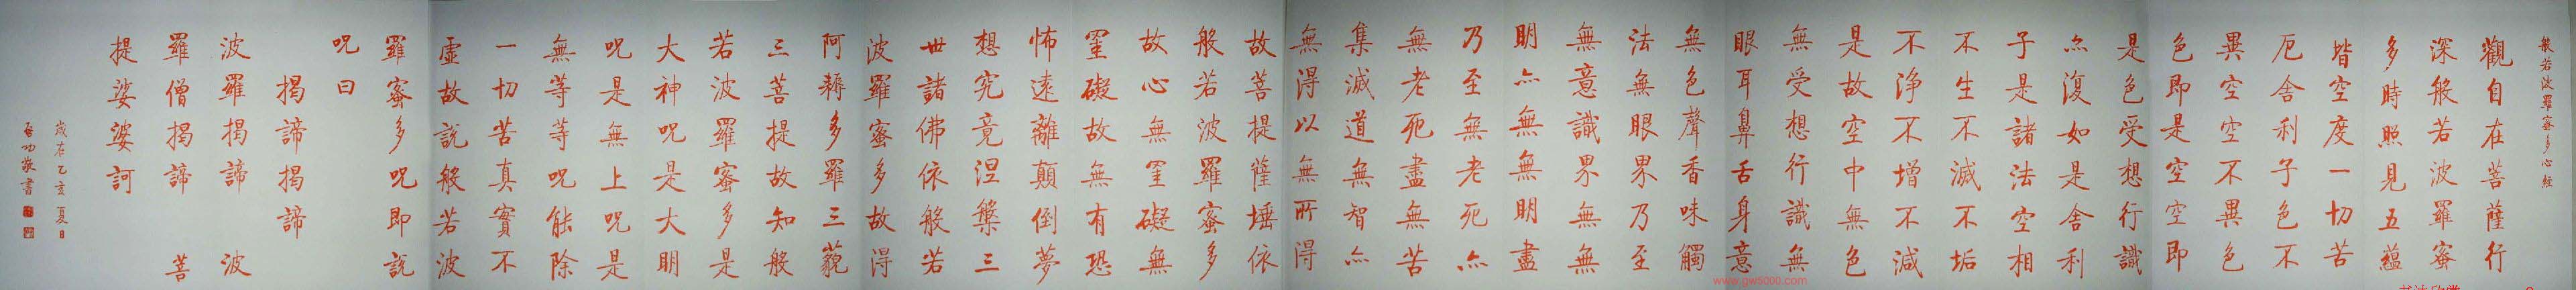 般若波羅蜜多心經
觀自在菩薩行
深般若波羅蜜
多時照見五蘊
皆空度一切苦
厄舍利子色不
異空空不異色
色即是空空即
是色受想行識
亦復如是舍利
子是諸法空相
不生不滅不垢
不淨不增不減
是故空中無色
無受想行識無
眼耳鼻舌身意
無色聲香味觸
法無眼界乃至
無意識界無無
明亦無無明盡
乃至無老死亦
無老死盡無苦
集滅道無智亦
無得以無所得
故菩提薩埵依
般若波羅蜜多
故心無罣礙無
罣礙故無有恐
怖遠離顛倒夢
想究竟涅槃三
世諸佛依般若
波羅蜜多故得
阿耨多羅三藐
三菩提故知般
若波羅蜜多是
大神咒是大明
咒是無上咒是
無等等咒能除
一切苦真實不
虛故說般若波
羅蜜多咒即說
咒曰
揭諦揭諦
波羅揭諦 波
羅僧揭諦 菩
提娑婆訶
歲在乙亥夏日
啟功敬書
www.gw5000.com